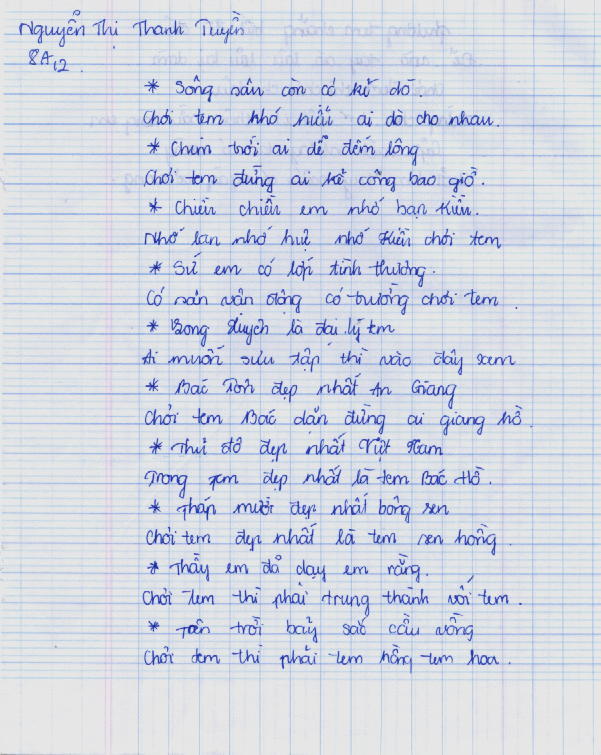 Nguyễn Thị Thanh Tuyền
8A12
* Sông sâu còn có kẻ dò
Chơi tem khó hiểu ai dò cho nhau.
* Chim trời ai dể đếm lông
Chơi tem đừng ai kể công bao giờ.
* Chiều chiều em nhớ bạn Kiều.
Nhớ lan nhớ huệ nhớ Kiều chơi tem
* Sứ em có lợi tình thương.
Có sân vân động có trường chơi tem.
* Bong Huỵch là đại lý tem
Ai muốn sưu tập thì vào đây xem
* Bác Tôn đẹp nhất An Giang
Chơi tem Bác dặn đừng ai giang hồ.
* Thủ đô đẹp nhất Việt Nam
Trong tem đẹp nhất là tem Bác Hồ.
* Tháp mười đẹp nhất bông sen
Chơi tem đẹp nhất là tem sen hồng.
* Thầy em đả dạy em rằng.
Chơi tem thì phải trung thành với tem.
* Trên trời bảy sắc cầu vồng
Chơi tem thì phải tem hồng tem hoa.